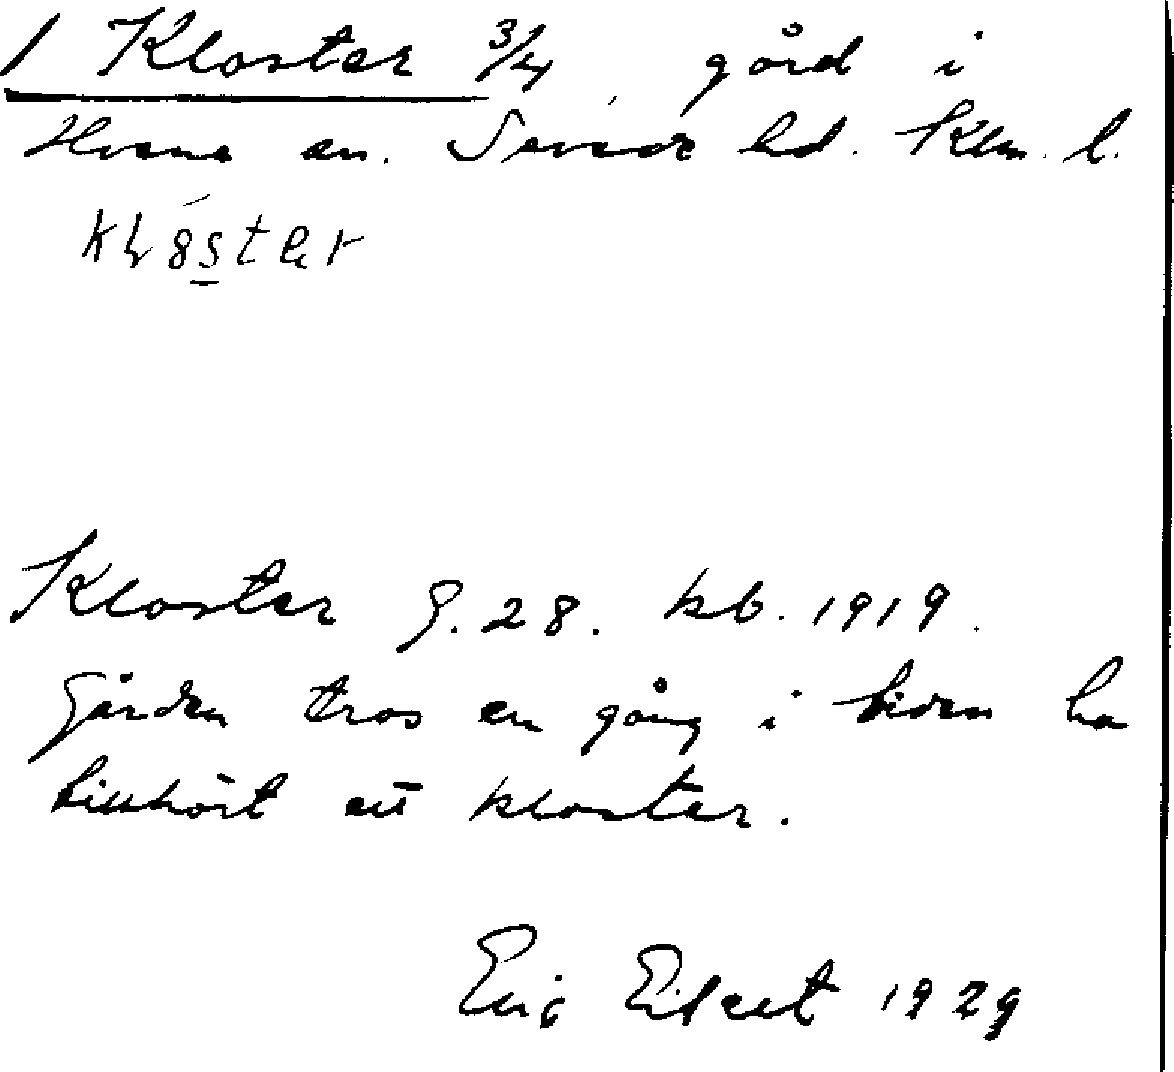 1 Kloster 3/4 gård i
Hvena sn. Sevede hd. Klm. l.
Kloster G. 28. kb. 1919.
Gården tros en gång i tiden ha
tillhört ett kloster.
1929